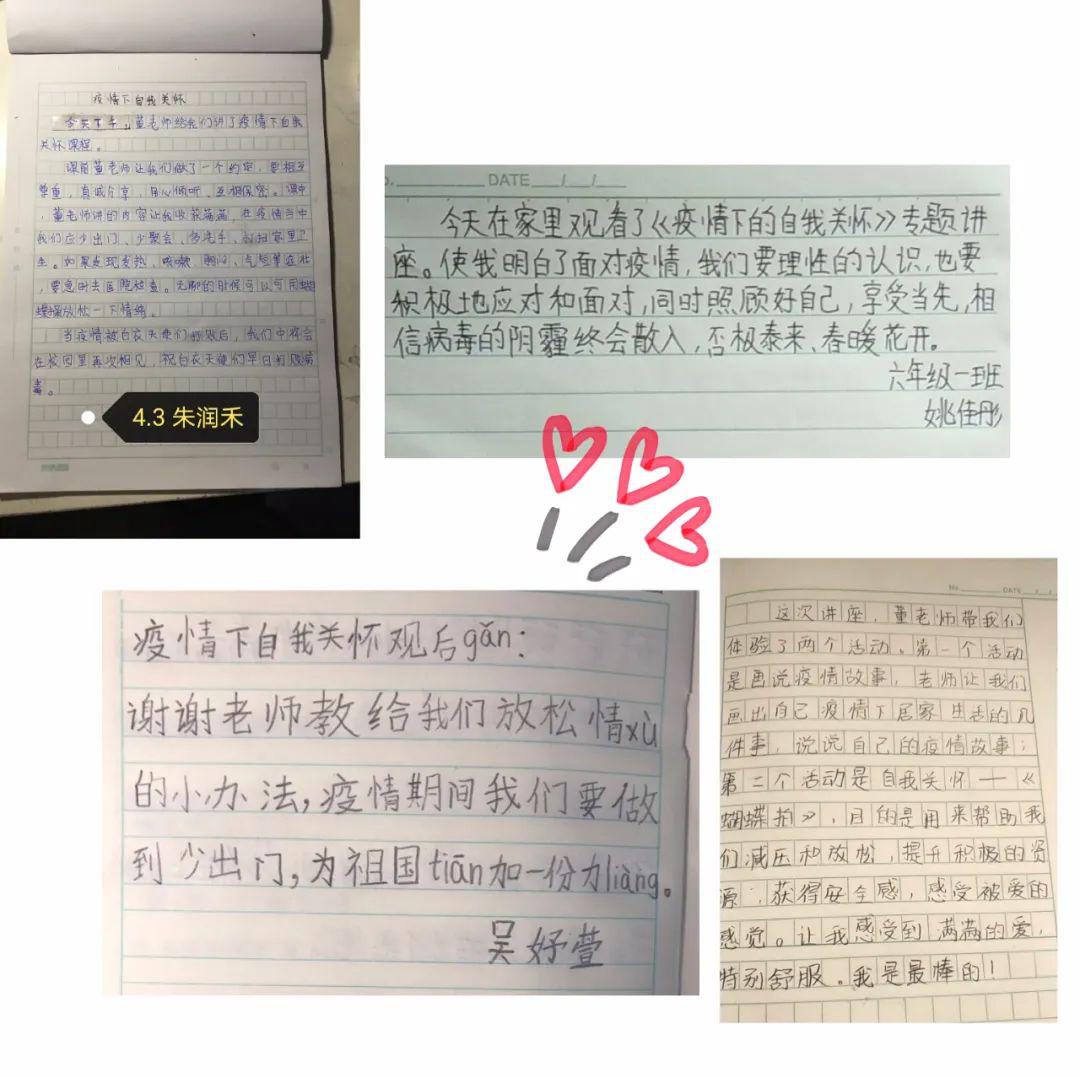 疫情下自我关怀
今天下午,董老师给我们讲了疫情下自我
关怀课程。
课前董老师让我们做了一个约定,要相互
尊重,真诚分享,用心倾听,互相保密。课中
,董老师讲的内容让我收获满满,在疫情当中
我们应少出门、少聚会、多洗手、打扫家里卫
生。如果发现发热、咳嗽、胸闷、气短等症状
,要急时去医院检查。无聊的时候可以可用蝴
蝶操放松一下情绪。
当疫情被白衣天使们打败后,我们中将会
在校园里再次相见,祝白衣天使们早日打败病
毒。
4.3 朱润禾
DATE
今天在家里观看了《疫情下的自我关怀》专题讲
座。使我明白了面对疫情,我们要理性的认识,也要
积极地应对和面对,同时照顾好自己,享受当先,相
信病毒的阴霾终会散入,否极泰来,春暖花开。
六年级一班
姚佳彤
疫情下自我关怀观后gǎn:
谢谢老师教给我们放松情xù
的小办法,疫情期间我们要做
到少出门,为祖国tiān加一份力liàng。
吴妤萱
No. DATE
这次讲座,董老师带我们
体验了两个活动。第一个活动
是画说疫情故事,老师让我们
画出自己疫情下居家生活的几
件事,说说自己的疫情故事;
第二个活动是自我关怀—《
蝴蝶拍》,目的是用来帮助我
们减压和放松,提升积极的资
源,获得安全感,感受被爱的
感觉。让我感受到满满的爱,
特别舒服。我是最棒的!